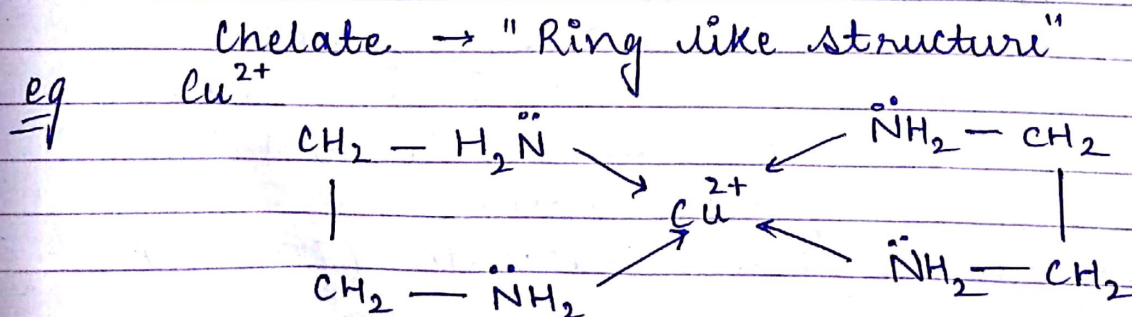 Chelate → "Ring like structure"
eg Cu²⁺
CH₂ — H₂N̈ N̈H₂ — CH₂
Cu²⁺
CH₂ — N̈H₂ N̈H₂ — CH₂